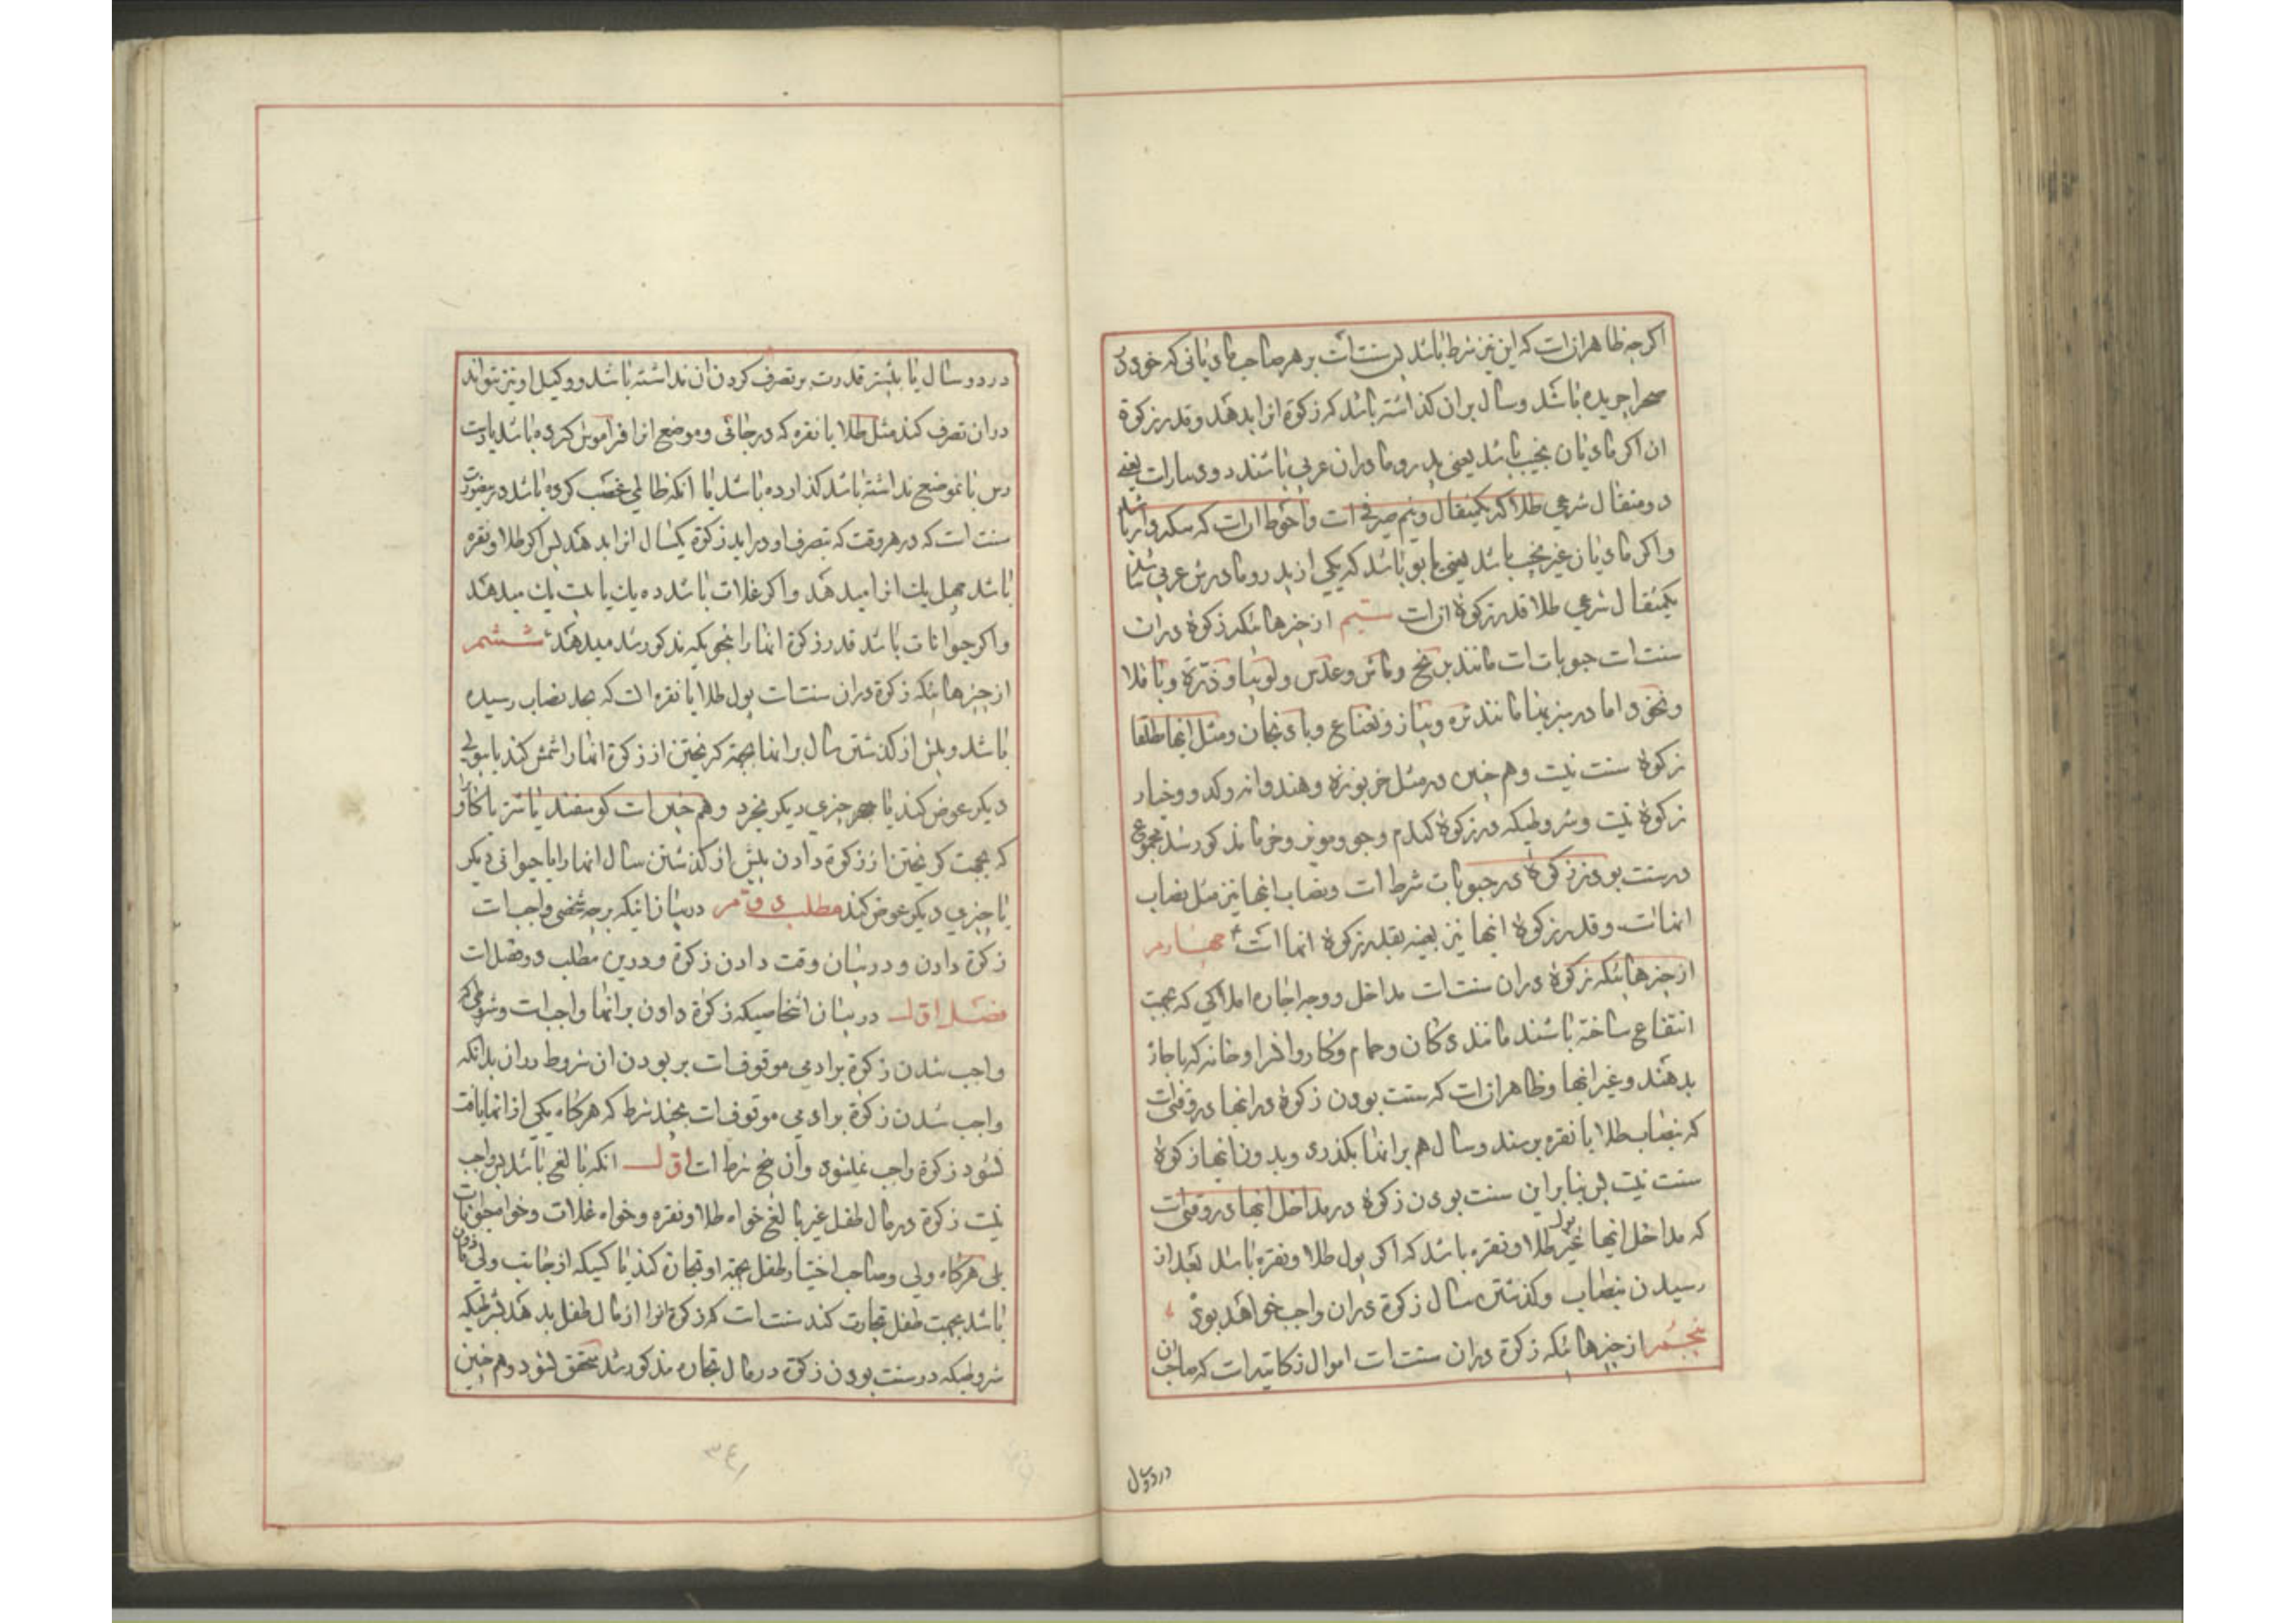 اکرچه ظاهر انست که این نیز شرط باشد پس سنتست بر هر صاحب مادیانی که خود در
صحرا چریده باشد و سال بران کذاشته باشد که زکوة انرا بدهد و قدر زکوة
ان اکر مادیان نجیب باشد یعنی پدر و مادران عربی باشند دو دینارست یعنی
دو مثقال شرعی طلا که یکمثقال و نیم صرفی است و احوط انست که سکه دار باشد
و اکر مادیان غیر نجیب باشد یعنی یابو باشد که یکی از پدر و مادرش عربی نباشد
یکمثقال شرعی طلا قدر زکوة انست سیم از چیزهائیکه زکوة دران
سنت است حبوبات است مانند برنج و ماش و عدس و لوبیا و ذرة و باقلا
و نخود اما در سبزیها مانند تره و پیاز و نعناع و بادنجان و مثل انها مطلقا
زکوة سنت نیست و هم چنین در مثل خربوزه و هندوانه و کدو و خیار
زکوة نیست و شروطیکه در زکوة کندم و جو و مویز و خرما مذکور شد مجموع
در سنت بودن زکوة در حبوبات شرط است و نصاب انها نیز مثل نصاب
انهاست و قدر زکوة انها نیز بعینه بقدر زکوة انها است چهارم
از چیزهائیکه زکوة دران سنت است مداخل و وجه اجاره املاکی که بجهت
انتفاع ساخته باشند مانند دکان و حمام و کاروانسرا و خانه که باجاره
بدهند و غیر انها و ظاهر انست که سنت بودن زکوة در انها در وقتی است
که بنصاب طلا یا نقره برسند و سال هم بر انها بکذرد و بدون انها زکوة
سنت نیست پس بنابراین سنت بودن زکوة در مداخل انها در وقتی است
که مداخل انها غیر پول طلا و نقره باشد که اکر پول طلا و نقره باشد بعد از
رسیدن بنصاب و کذشتن سال زکوة دران واجب خواهد بود
پنجم از چیزهائیکه زکوة دران سنت است اموال زکاتیه است که صاحب ان
در دو سال
در دو سال یا بیشتر قدرت بر تصرف کردن ان نداشته باشد و وکیل او نیز نتواند
دران تصرف کند مثل طلا یا نقره که در جائی و موضع انرا فراموش کرده باشد یا دست
رس بانموضع نداشته باشد کذارده باشد یا انکه ظالمی غصب کرده باشد درینصورت
سنت است که در هر وقت که بتصرف او دراید زکوة یکسال انرا بدهد پس اکر طلا و نقره
باشد چهل یک انرا میدهد و اکر غلات باشد ده یک یا بیست یک میدهد
و اکر حیوانات باشد قدر زکوة انها را بنحویکه مذکور شد میدهد ششم
از چیزهائیکه زکوة دران سنت است پول طلا یا نقره است که بحد نصاب رسیده
باشد و پیش از کذشتن سال بر انها بجهة کریختن از زکوة انها را شمش کند یا بپولی
دیکر عوض کند یا چیزی دیکر بخرد و هم چنین است کوسفند یا شتر یا کاو را
که بجهت کریختن از زکوة دادن پیش از کذشتن سال انها را با حیوانی دیکر
یا چیزی دیکر عوض کند مطلب دوم در بیان اینکه بر چه شخصی واجبست
زکوة دادن و در بیان وقت دادن زکوة و درین مطلب دو فصلست
فصل اول در بیان اشخاصیکه زکوة دادن بر انها واجبست و شروطی که
واجب شدن زکوة برادمی موقوفست بر بودن ان شروط دران بدانکه
واجب شدن زکوة برادمی موقوفست بچند شرط که هرکاه یکی از انها یافت
نشود زکوة واجب نمیشود و ان پنج شرط است اول انکه بالغ باشد پس واجب
نیست زکوة در مال طفل غیر بالغ خواه طلا و نقره و خواه غلات و خواه حیوانات
بلی هرکاه ولی و صاحب اختیار طفل بجهة او تجارة کند یا کسیکه از جانب ولی ماذون
باشد بجهت طفل تجارت کند سنت است که زکوة انرا از مال طفل بدهد بشرطیکه
شروطیکه در سنت بودن زکوة در مال تجاره مذکور شد متحقق شود و هم چنین